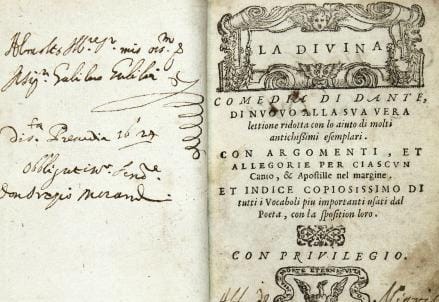 Al molto
Galileo Galilei
1624
don Orazio Morandi
LA DIVINA
COMEDIA DI DANTE,
DI NVOVO ALLA SVA VERA
lettione ridotta con lo aiuto di molti
antichissimi esemplari.
CON ARGOMENTI, ET
ALLEGORIE PER CIASCVN
Canto, & Apostille nel margine.
ET INDICE COPIOSISSIMO DI
tutti i Vocaboli piu importanti usati dal
Poeta, con la sposition loro.
CON PRIVILEGIO.
MORTE ETERNA VITA